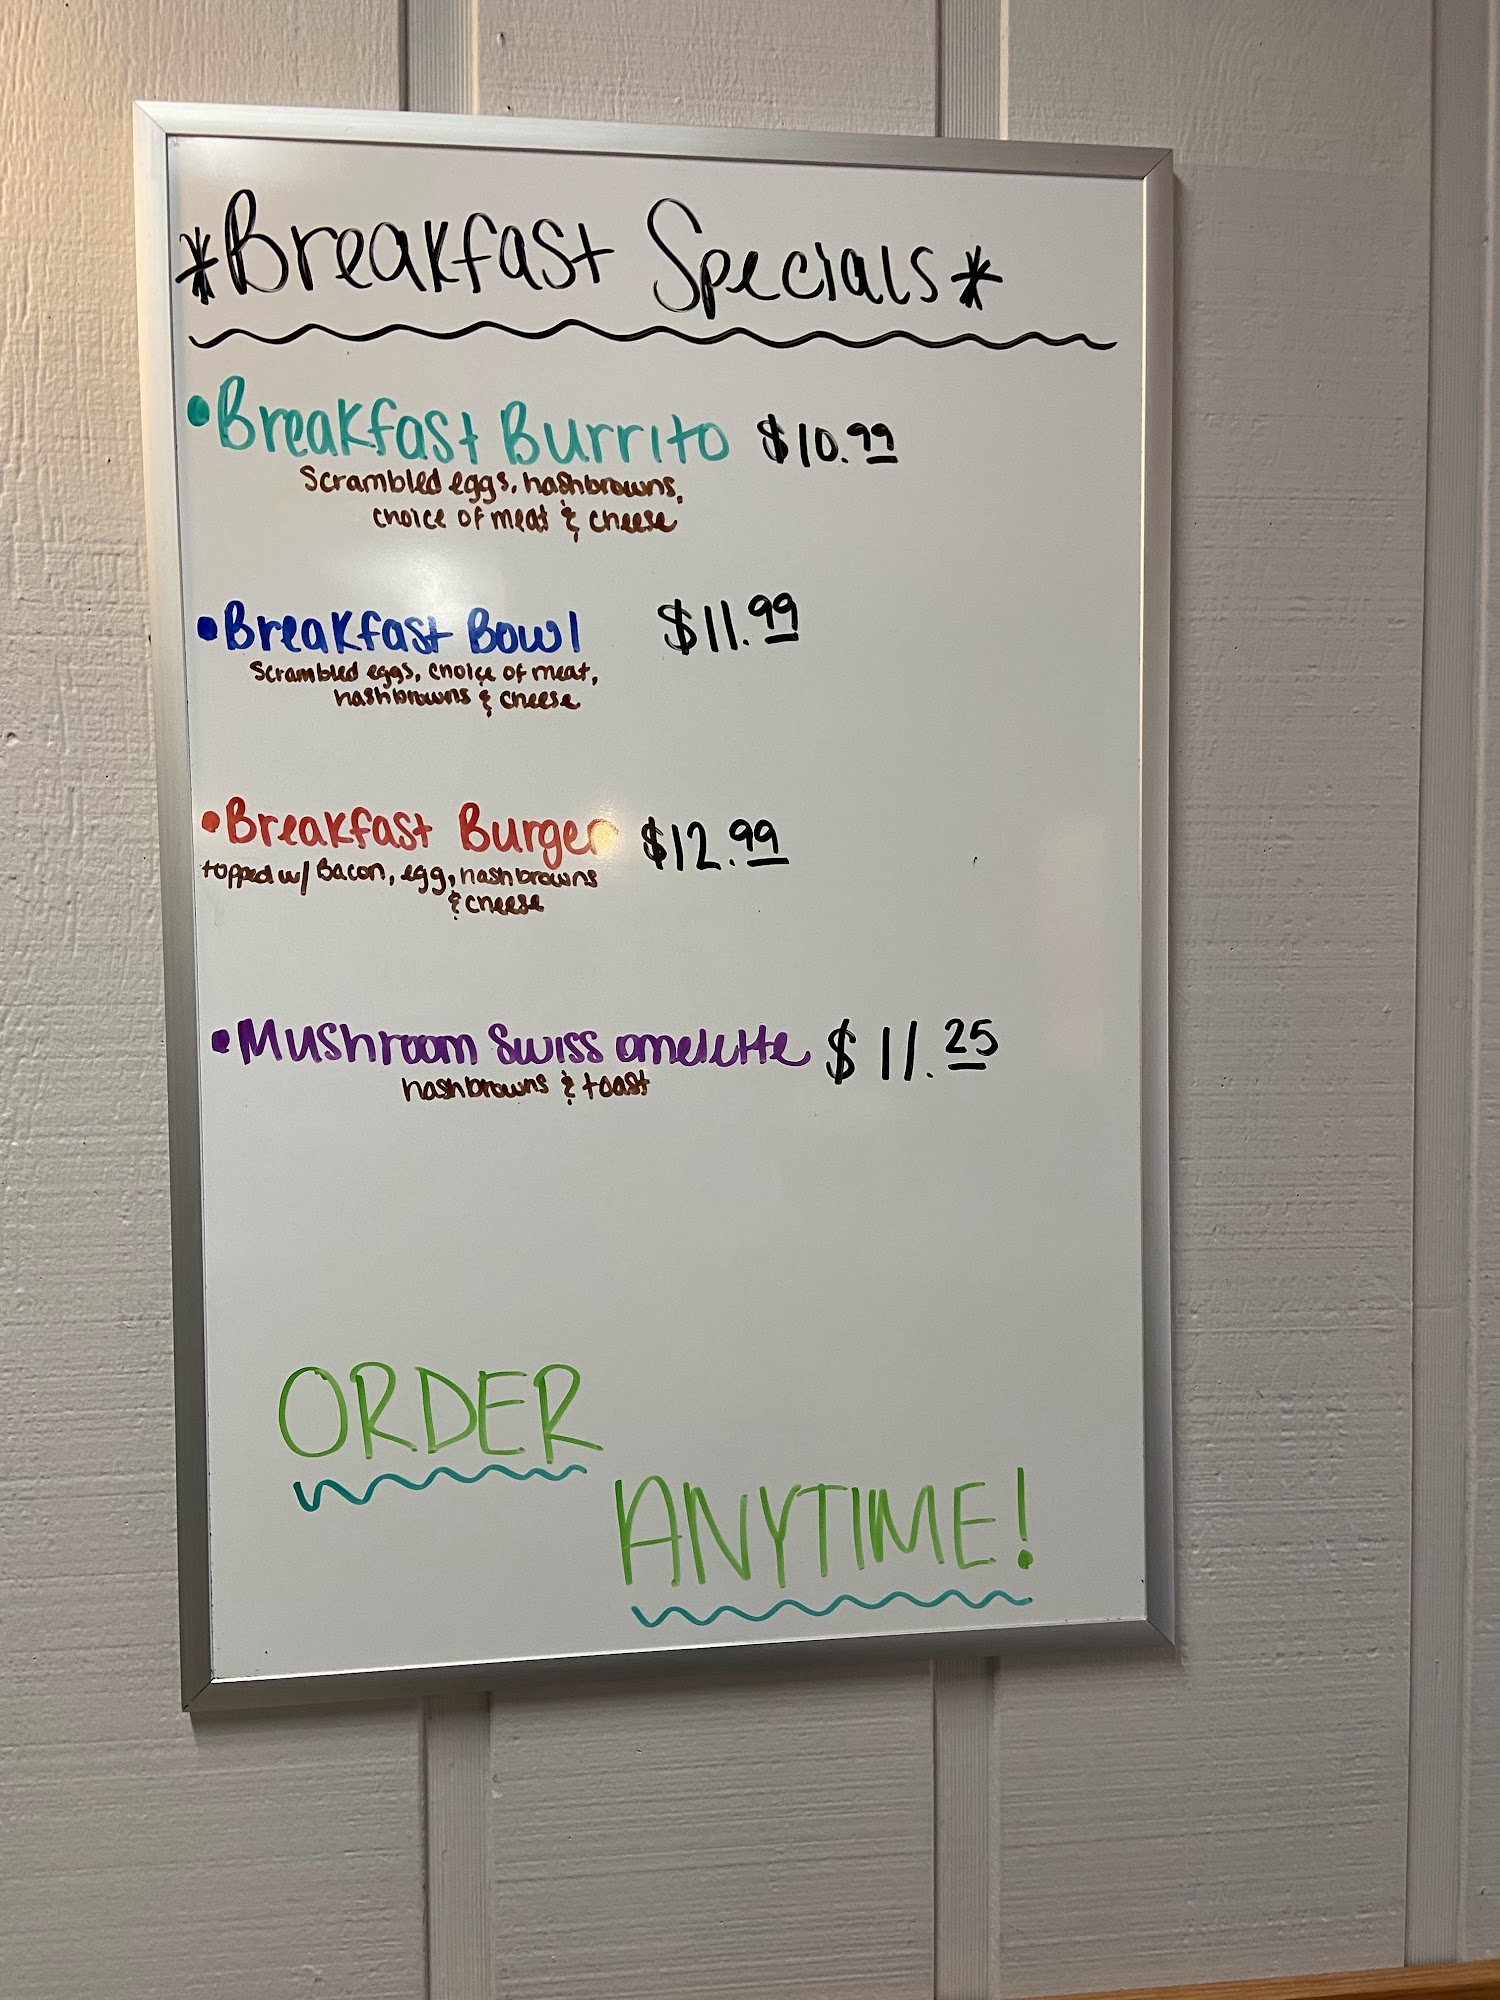 *Breakfast Specials*
•Breakfast Burrito $10.99
Scrambled eggs, hashbrowns,
choice of meat & cheese
•Breakfast Bowl $11.99
Scrambled eggs, choice of meat,
hashbrowns & cheese
•Breakfast Burger $12.99
topped w/ Bacon, egg, hashbrowns
& cheese
•Mushroom Swiss omelette $11.25
hashbrowns & toast
ORDER
ANYTIME!